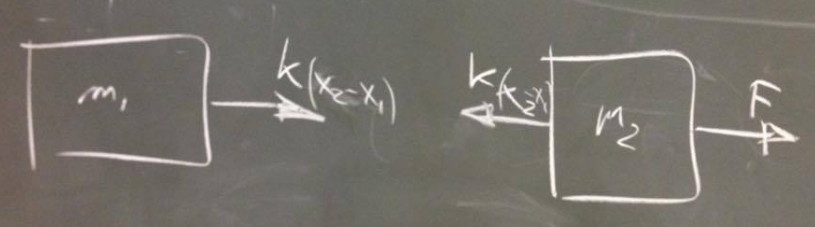 m₁
k(x₂-x₁)
k(x₂-x₁)
m₂
F